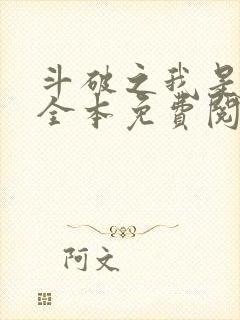 斗破之我是
全本免費閱
阿文